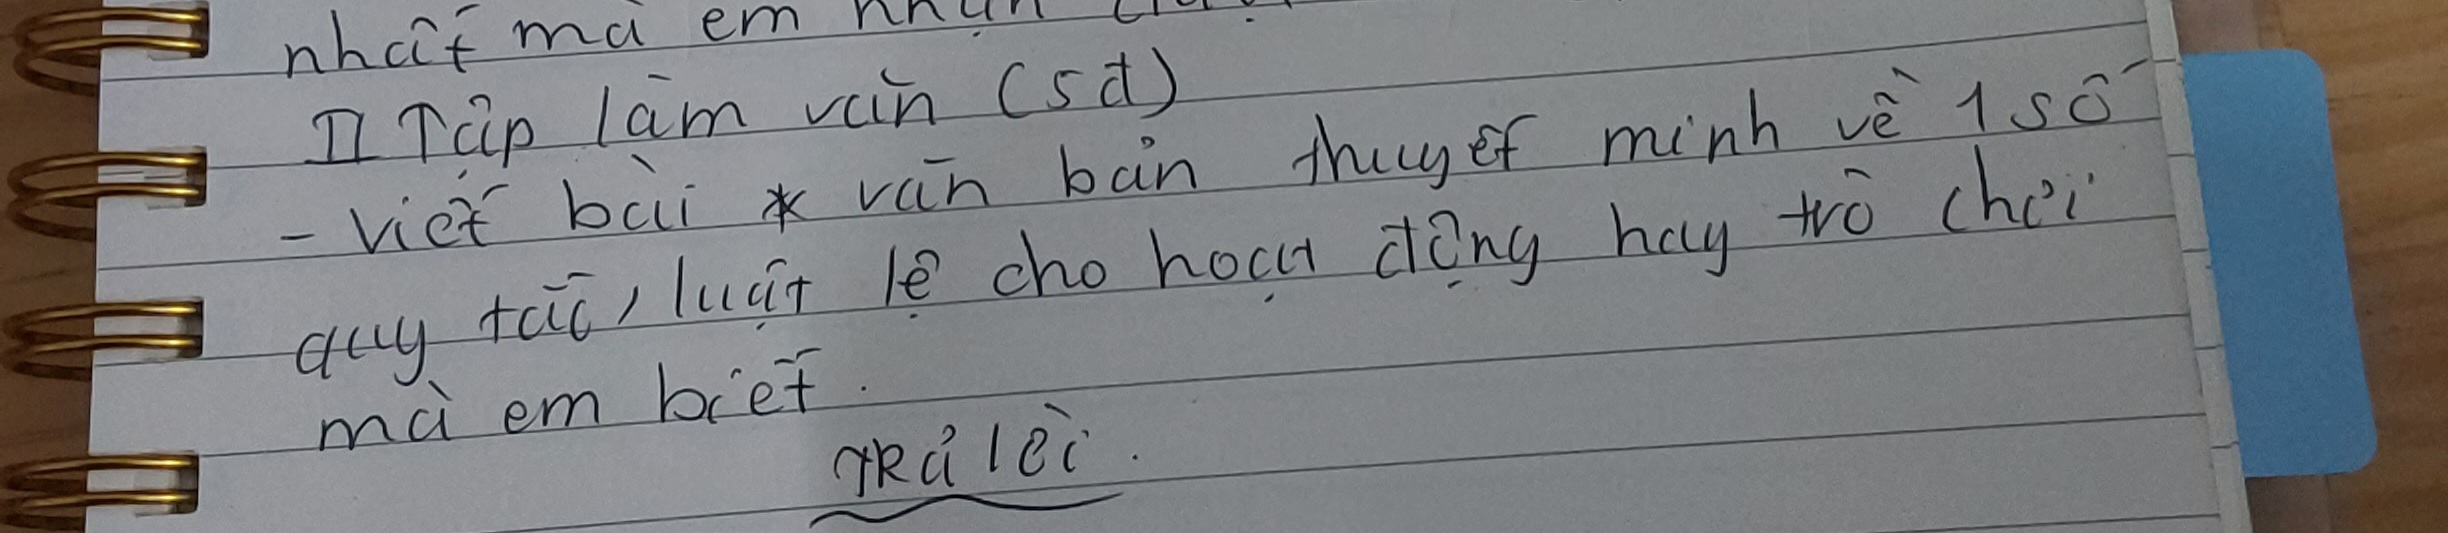 nhất mà em nhận
II Tập làm văn (5đ)
- Viết bài * văn bản thuyết minh về 1 số
quy tắc, luật lệ cho hoạt động hay trò chơi
mà em biết.
TRả lời.